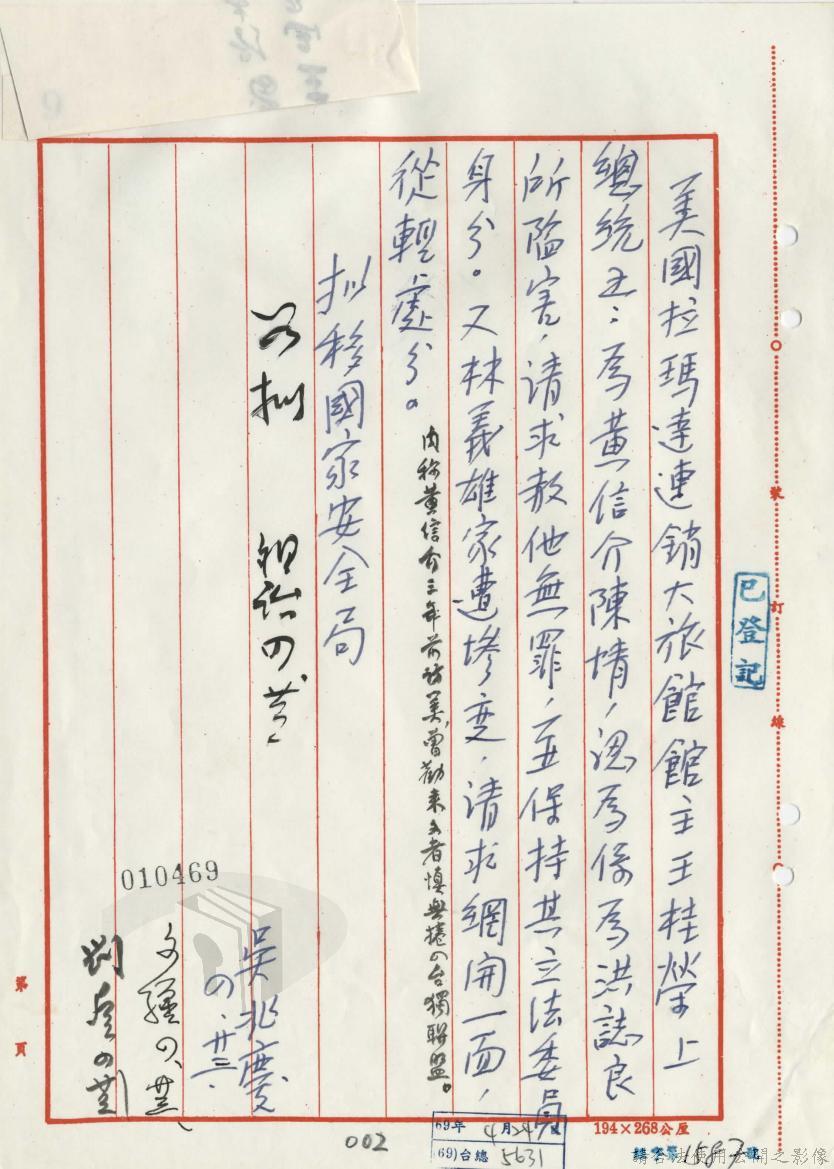 美國拉瑪達連鎖大旅館館主王桂榮上
總統函：為黃信介陳情，認為係為洪誌良
所陷害，請求赦他無罪，並保持其立法委員
身分。又林義雄家遭慘变，请求網開一面，
從輕處分。
內称黃信介三年前訪美，曾勸來文者慎與捲入台獨聯盟。
擬移國家安全局
如拟
吳兆慶
010469
已登記
裝
訂
線
第 頁
002
69年 4月24
(69)台總 5631
194×268公厘
總字第1587號
請合法使用公開之影像